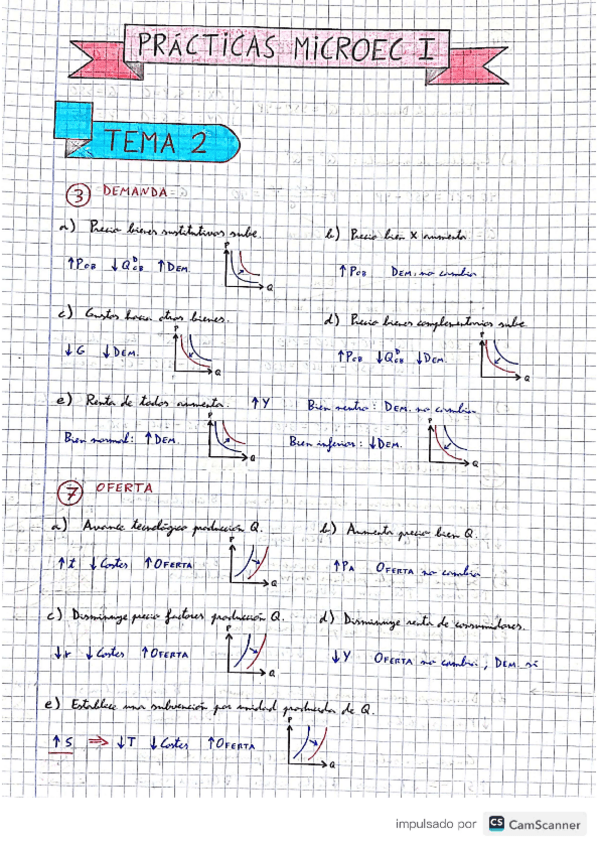 PRÁCTICAS MICROEC I
TEMA 2
3 DEMANDA
a) Precio bienes sustitutivos sube.
b) Precio bien X aumenta.
↑PCB ↓QᴰCB ↑DEM.
P
Q
↑PCB DEM. no cambia
c) Gustos hacia otros bienes.
d) Precio bienes complementarios sube
↓G ↓DEM.
P
Q
↑PCB ↓QᴰCB ↓DEM.
P
Q
e) Renta de todos aumenta. ↑Y Bien neutro: DEM. no cambia
Bien normal: ↑DEM.
P
Q
Bien inferior: ↓DEM.
P
Q
7 OFERTA
a) Avance tecnológico producción Q.
b) Aumenta precio bien Q.
↑t ↓Costes ↑OFERTA
P
Q
↑PA OFERTA no cambia
c) Disminuye precio factores producción Q.
d) Disminuye renta de consumidores.
↓r ↓Costes ↑OFERTA
P
Q
↓Y OFERTA no cambia, DEM. sí
e) Establece una subvención por unidad producida de Q.
↑S ⇒ ↓T ↓Costes ↑OFERTA
P
Q
impulsado por CS CamScanner